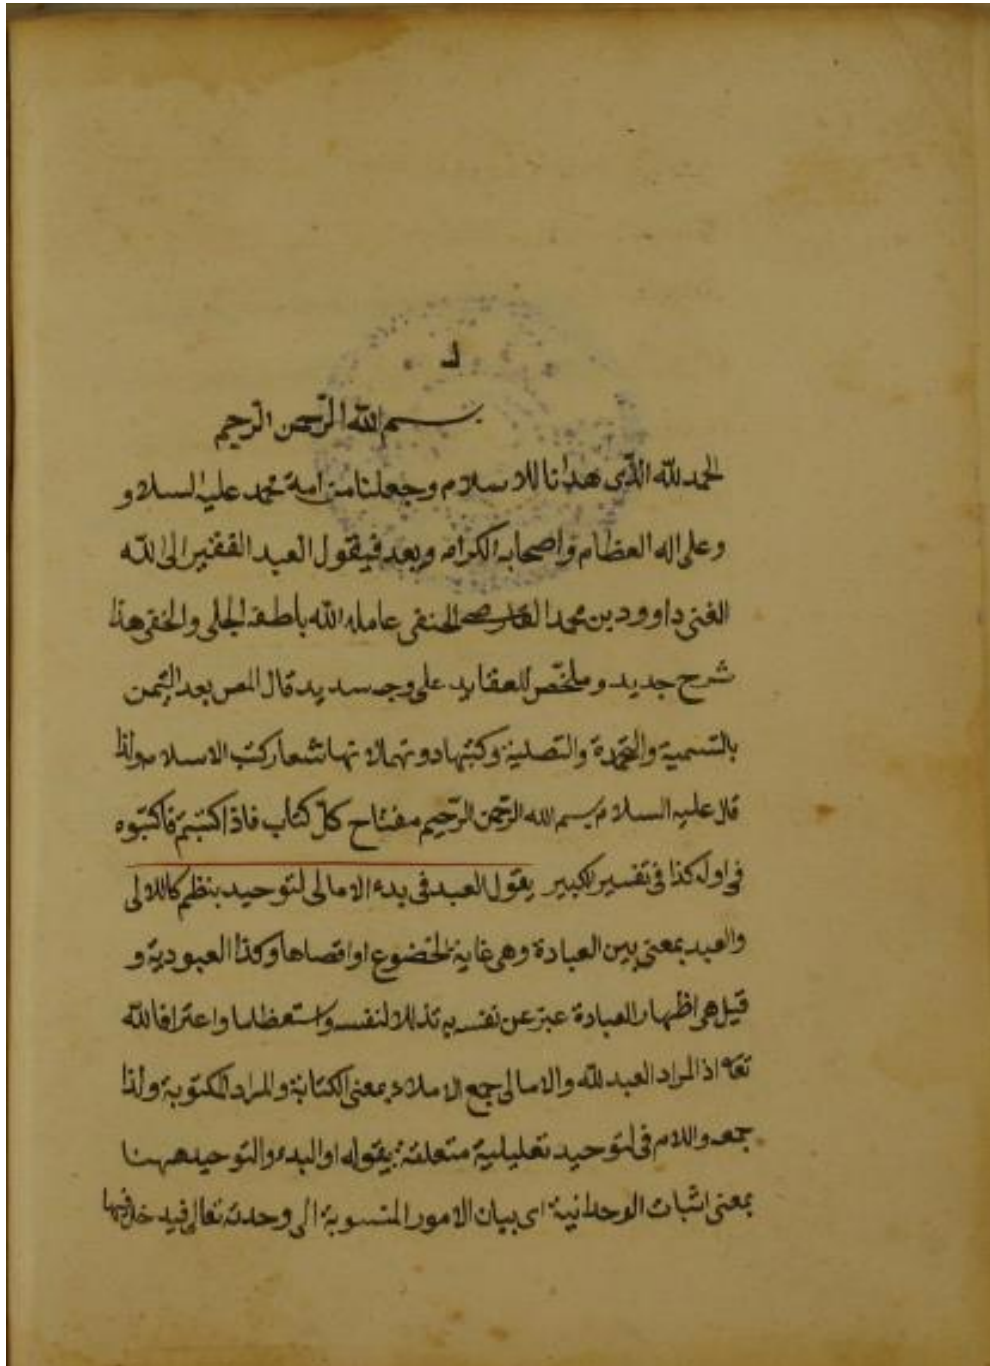 بسم الله الرّحمن الرّحيم
الحمد للّه الّذى هدانا للاسلام وجعلنا من امة محمد عليه السلام و
وعلى اله العظام واصحابه الكرام وبعد فيقول العبد الفقير الى للّه
الغنى داوود بن محمد الحنفى عامله اللّه بلطفه الجلى والخفى هذا
شرح جديد وملخّص للعقايد على وجه سديد قال المص بعد التيمن
بالتسمية والتحمدة والتصلية وكتبها دونهما لانها شعار كتب الاسلام ولذا
قال عليه السلام بسم الله الرّحمن الرّحيم مفتاح كلّ كتاب فاذا كتبتم فاكتبوه
فى اوله كذا فى تفسير الكبير يقول العبد فى بدء الامالى لتوحيد بنظم كاللالى
والعبد بمعنى بين العبادة وهى غاية الخضوع او اقصاها وكذا العبودية و
قيل هى اظهار العبادة عبّر عن نفسه به تذللا لنفسه واستعظاما واعترافا للّه
تعا اذ المراد العبد للّه والامالى جمع الاملاء بمعنى الكتابة والمراد المكتوبة ولذا
جمعه واللام فى لتوحيد تعليلية متعلقة بيقول او البدء والتوحيد ههنا
بمعنى اثبات الوحدانية اى بيان الامور المنسوبة الى وحدته تعالى فيدخل فيها